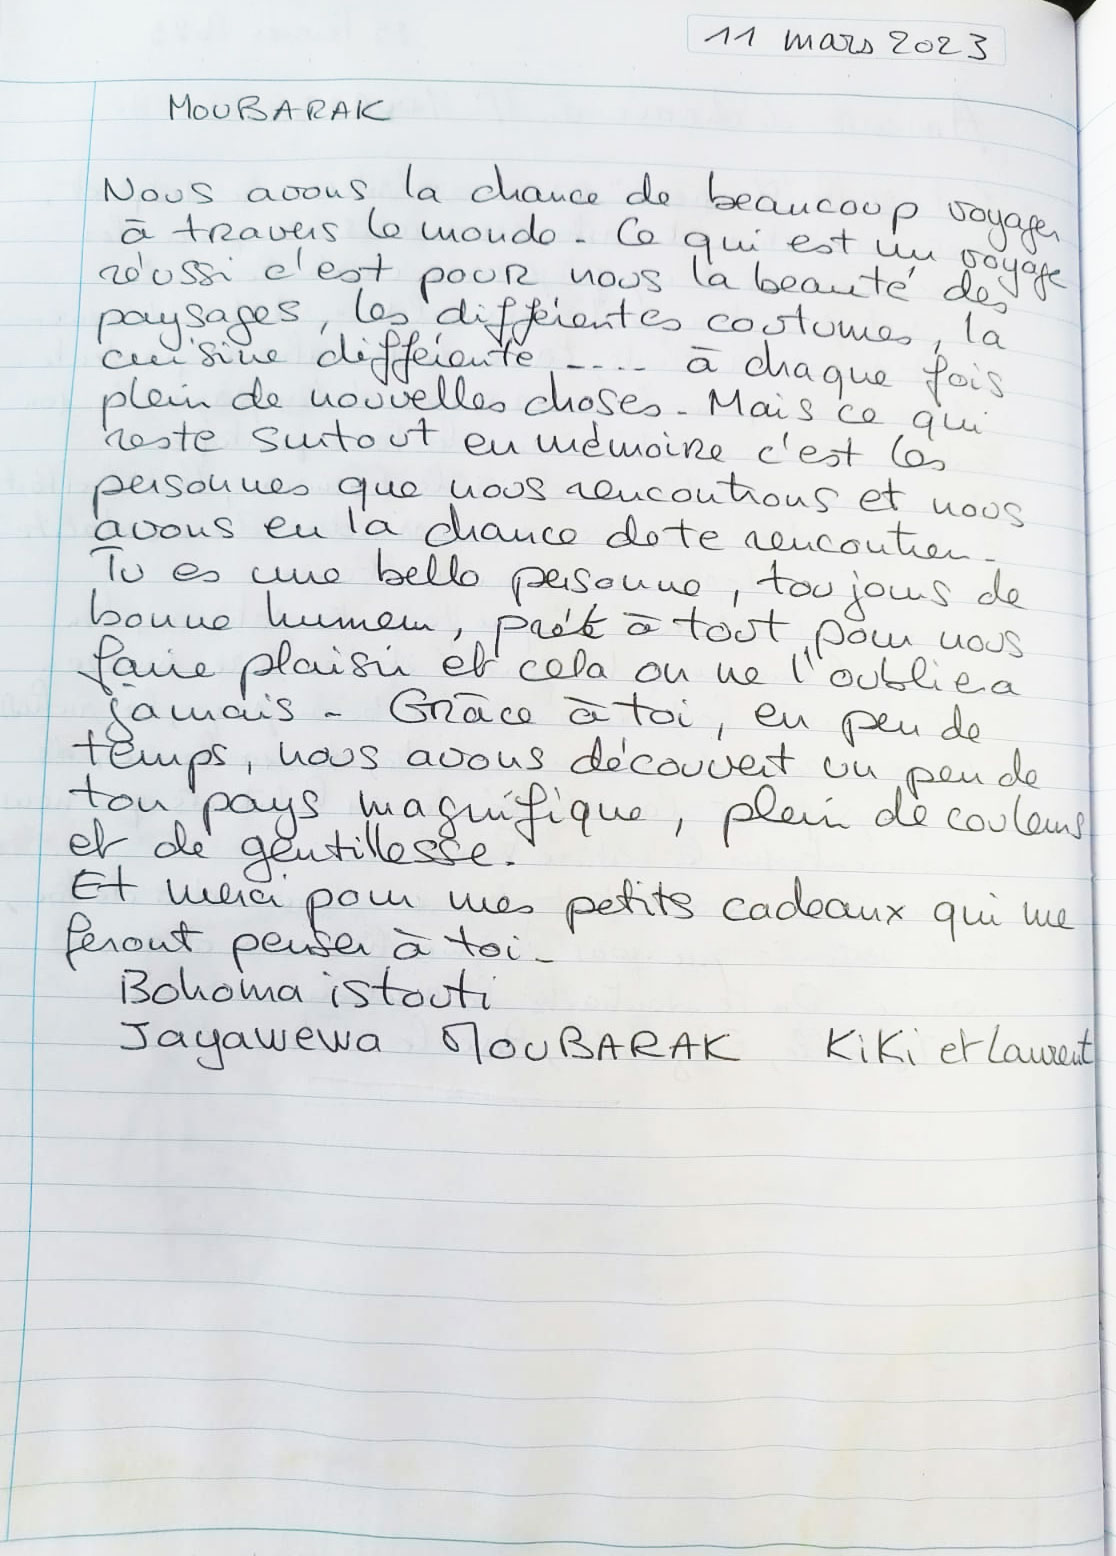 11 mars 2023
MOUBARAK
Nous avons la chance de beaucoup voyager
à travers le monde. Ce qui est un voyage
réussi c'est pour nous la beauté des
paysages, les différentes coutumes, la
cuisine différente .... à chaque fois
plein de nouvelles choses. Mais ce qui
reste surtout en mémoire c'est les
personnes que nous rencontrons et nous
avons eu la chance de te rencontrer.
Tu es une belle personne, toujours de
bonne humeur, prêt à tout pour nous
faire plaisir et cela on ne l'oubliera
jamais - Grâce à toi, en peu de
temps, nous avons découvert un peu de
ton pays magnifique, plein de couleurs
et de gentillesse.
Et merci pour mes petits cadeaux qui me
feront penser à toi -
Bohoma istouti
Jayawewa MOUBARAK KiKi et Laurent